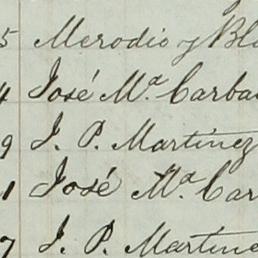 5 Merodio y Bla
4 José Mª Carba
9 J. P. Martinez
1 José Mª Car
7 J. P. Martine